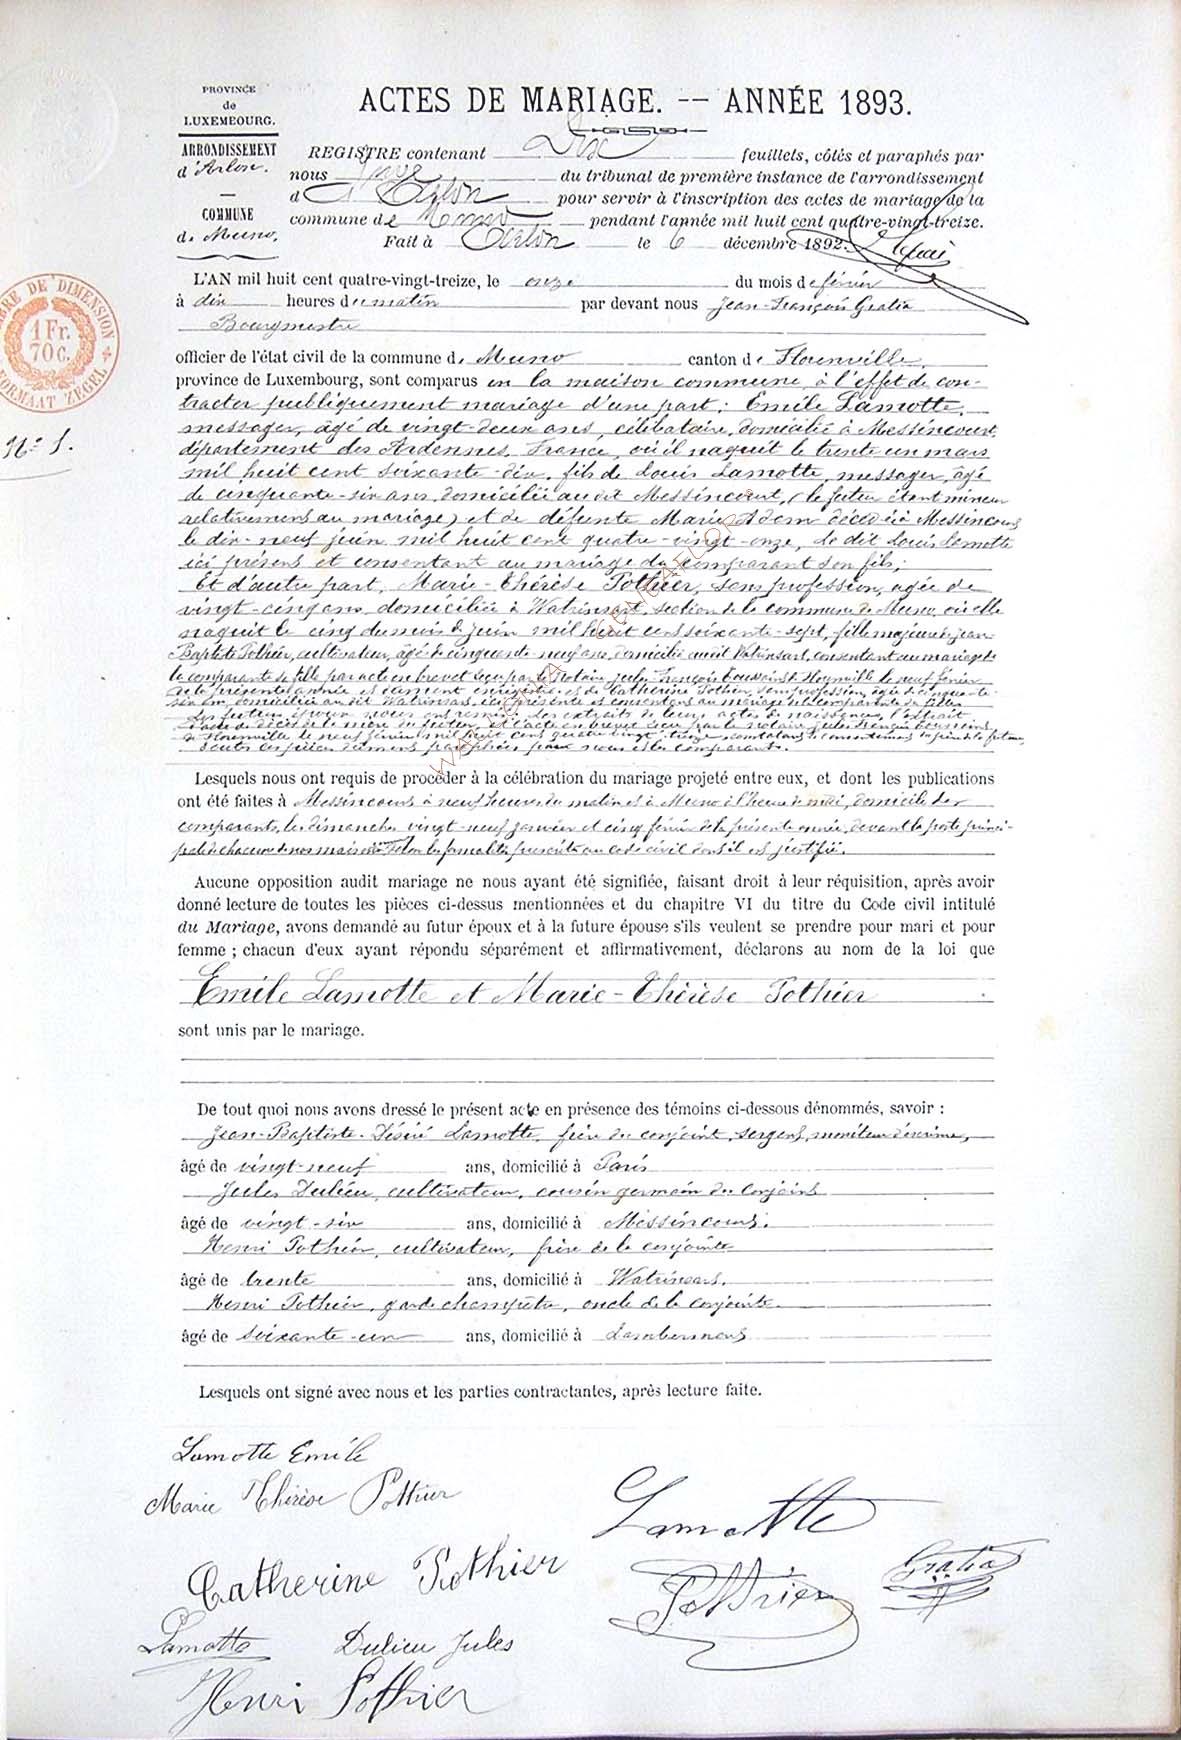 PROVINCE
de
LUXEMBOURG.
ARRONDISSEMENT
d'Arlon.
COMMUNE
de Muno.
ACTES DE MARIAGE. — ANNÉE 1893.
REGISTRE contenant Dix feuillets, côtés et paraphés par
nous Juge du tribunal de première instance de l'arrondissement
d'Arlon pour servir à l'inscription des actes de mariage de la
commune de Muno pendant l'année mil huit cent quatre-vingt-treize.
Fait à Arlon le 6 décembre 1892.
TIMBRE DE DIMENSION
1 Fr.
70 C.
FORMAAT ZEGEL
N° 1.
L'AN mil huit cent quatre-vingt-treize, le onze du mois de février
à dix heures du matin par devant nous Jean-François Gratia
Bourgmestre
officier de l'état civil de la commune de Muno canton de Florenville,
province de Luxembourg, sont comparus en la maison commune, à l'effet de con-
tracter publiquement mariage d'une part: Emile Lamotte,
messager, âgé de vingt-deux ans, célibataire, domicilié à Messincourt,
département des Ardennes, France, où il naquit le trente un mars
mil huit cent soixante-dix, fils de Louis Lamotte, messager, âgé
de cinquante-six ans, domicilié au dit Messincourt, (le futur étant mineur
relativement au mariage) et de défunte Marie Adam décédée à Messincourt
le dix-neuf juin mil huit cent quatre-vingt-onze, le dit Louis Lamotte
ici présent et consentant au mariage du comparant son fils;
Et d'autre part, Marie-Thérèse Pothier, sans profession, agée de
vingt-cinq ans, domiciliée à Watrinsart, section de la commune de Muno, où elle
naquit le cinq du mois de juin mil huit cent soixante-sept, fille majeure de Jean
Baptiste Pothier, cultivateur, âgé de cinquante-neuf ans, domicilié audit Watrinsart, consentant au mariage de
la comparante sa fille par acte en brevet reçu par le Notaire Jules-François de Florenville le neuf février
de la présente année et dument enregistré et de Catherine Pothier, sans profession, âgée de cinquante-
six ans, domiciliée au dit Watrinsart, ici présente et consentant au mariage de la comparante sa fille.
Les futurs époux nous ont remis: les extraits de leurs actes de naissance, l'extrait
d'acte de décès de la mère du futur, et l'acte en brevet reçu par le notaire Jules François
de Florenville le neuf février mil huit cent quatre vingt treize, constatant le consentement du père de la future,
toutes ces pièces dument paraphées par nous et les comparants.
Lesquels nous ont requis de procéder à la célébration du mariage projeté entre eux, et dont les publications
ont été faites à Messincourt à neuf heures du matin et à Muno à l'heure de midi, domicile des
comparants, les dimanches vingt-neuf janvier et cinq février de la présente année, devant la porte princi-
pale de chacune de nos maisons selon les formalités prescrites au code civil dont il est justifié.
Aucune opposition audit mariage ne nous ayant été signifiée, faisant droit à leur réquisition, après avoir
donné lecture de toutes les pièces ci-dessus mentionnées et du chapitre VI du titre du Code civil intitulé
du Mariage, avons demandé au futur époux et à la future épouse s'ils veulent se prendre pour mari et pour
femme ; chacun d'eux ayant répondu séparément et affirmativement, déclarons au nom de la loi que
Emile Lamotte et Marie-Thérèse Pothier
sont unis par le mariage.
De tout quoi nous avons dressé le présent acte en présence des témoins ci-dessous dénommés, savoir :
Jean-Baptiste-Désiré Lamotte, frère du conjoint, sergent, moniteur d'escrime,
âgé de vingt-neuf ans, domicilié à Paris
Jules Dulieu, cultivateur, cousin germain du conjoint
âgé de vingt-six ans, domicilié à Messincourt.
Henri Pothier, cultivateur, frère de la conjointe
âgé de trente ans, domicilié à Watrinsart.
Henri Pothier, garde champêtre, oncle de la conjointe.
âgé de soixante-un ans, domicilié à Lambermont
Lesquels ont signé avec nous et les parties contractantes, après lecture faite.
Lamotte Emile
Marie Thérèse Pothier
Lamotte
Catherine Pothier
Pothier
Gratia
Lamotte
Dulieu Jules
Henri Pothier